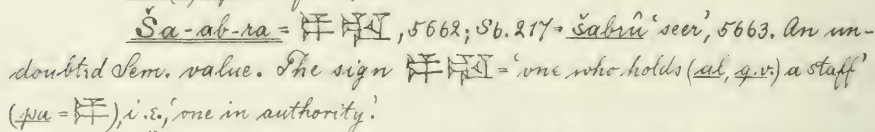 Ša-ab-ra = 𒉺 𒀠, 5662; Sb. 217 = šabrû 'seer', 5663. An un-
doubtid Sem. value. The sign 𒉺 𒀠 = 'one who holds (al, q.v.) a staff'
(pa = 𒉺), i.e., 'one in authority.'